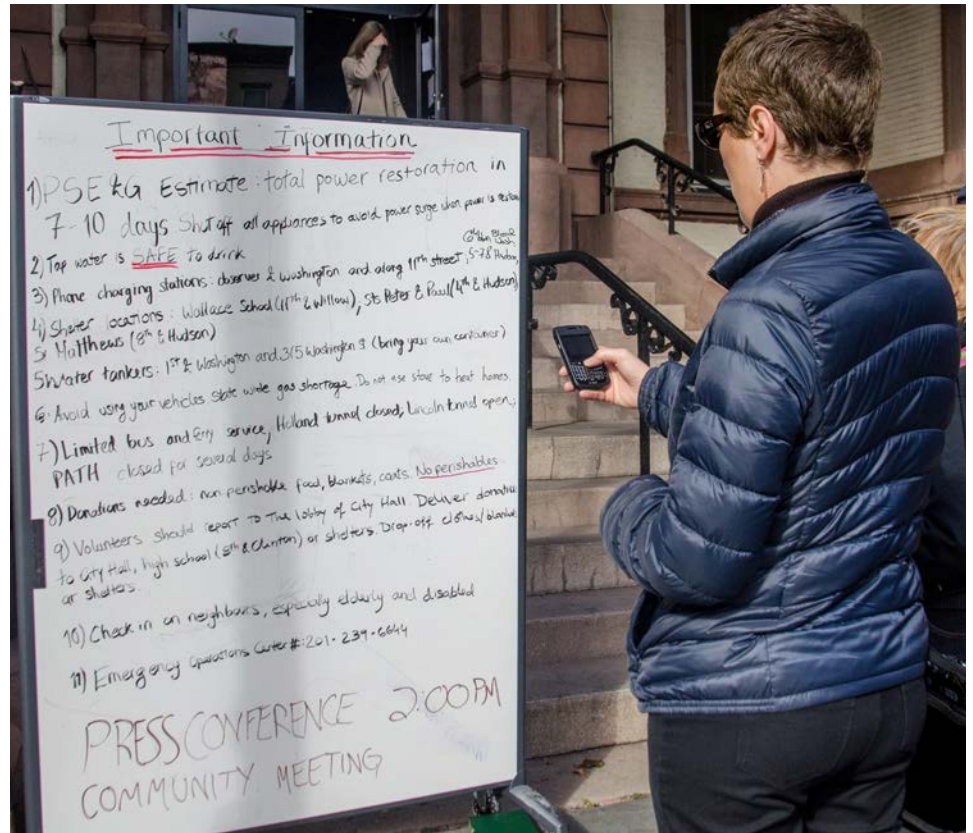 Important Information
1) PSE&G Estimate: total power restoration in
7-10 days Shut off all appliances to avoid power surge when power is
2) Tap water is SAFE to drink
3) Phone charging stations: & Washington and along 11th street,
4) Shelter locations: Wallace School (11th & Willow), Sts Peter & Paul (4th & Hudson),
St Matthews (8th & Hudson)
5) Water tankers: 1st & Washington and 315 Washington St (bring your own container)
6. Avoid using your vehicles state wide gas shortage. Do not use stove to heat homes.
7) Limited bus and ferry service, Holland tunnel closed; Lincoln tunnel open;
PATH closed for several days
8) Donations needed: non perishable food, blankets, coats. No perishables
9) Volunteers should report to The lobby of City Hall. Deliver donations
to City Hall, high school (5th & Clinton) or shelters. Drop-off clothes/blankets
at shelters.
10) Check in on neighbours, especially elderly and disabled
11) Emergency Operations Center #: 201-239-6644
PRESS CONFERENCE 2:00 PM
COMMUNITY MEETING